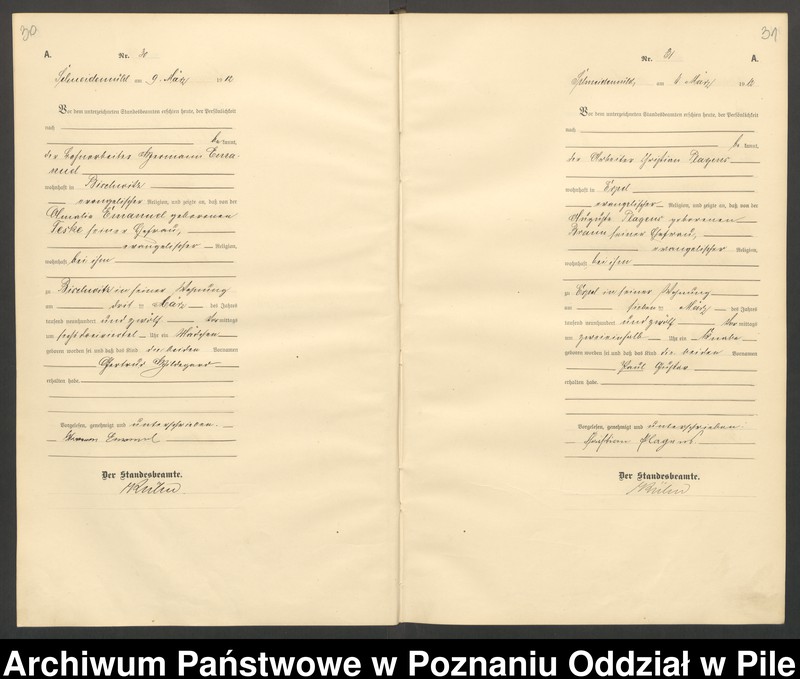 30
A.
Nr. 30
Schneidemühl am 9. März 1912
Vor dem unterzeichneten Standesbeamten erschien heute, der Persönlichkeit
nach
be kannt,
der Hermann Ema-
nuel
wohnhaft in
evangelischer Religion, und zeigte an, daß von der
Amalie Emanuel geborenen
Teske seiner Ehefrau,
evangelischer Religion,
wohnhaft bei ihm
zu in seiner Wohnung
am drei ten März des Jahres
tausend neunhundert und zwölf Vor mittags
um sechs dreiviertel Uhr ein Mädchen
geboren worden sei und daß das Kind die beiden Vornamen
Gertrud Hildegard
erhalten habe.
Vorgelesen, genehmigt und unterschrieben.
Hermann Emanuel
Der Standesbeamte.
31
Nr. 31
A.
Schneidemühl, am März 1912
Vor dem unterzeichneten Standesbeamten erschien heute, der Persönlichkeit
nach
be kannt,
der Arbeiter Christian Plagens
wohnhaft in Erpel
evangelischer Religion, und zeigte an, daß von der
Auguste Plagens geborenen
Braun seiner Ehefrau,
evangelischer Religion,
wohnhaft bei ihm
zu Erpel in seiner Wohnung
am sieben ten März des Jahres
tausend neunhundert und zwölf Vor mittags
um zweieinhalb Uhr ein Knabe
geboren worden sei und daß das Kind die beiden Vornamen
Paul Gustav
erhalten habe.
Vorgelesen, genehmigt und unterschrieben.
Christian Plagens
Der Standesbeamte.
Archiwum Państwowe w Poznaniu Oddział w Pile